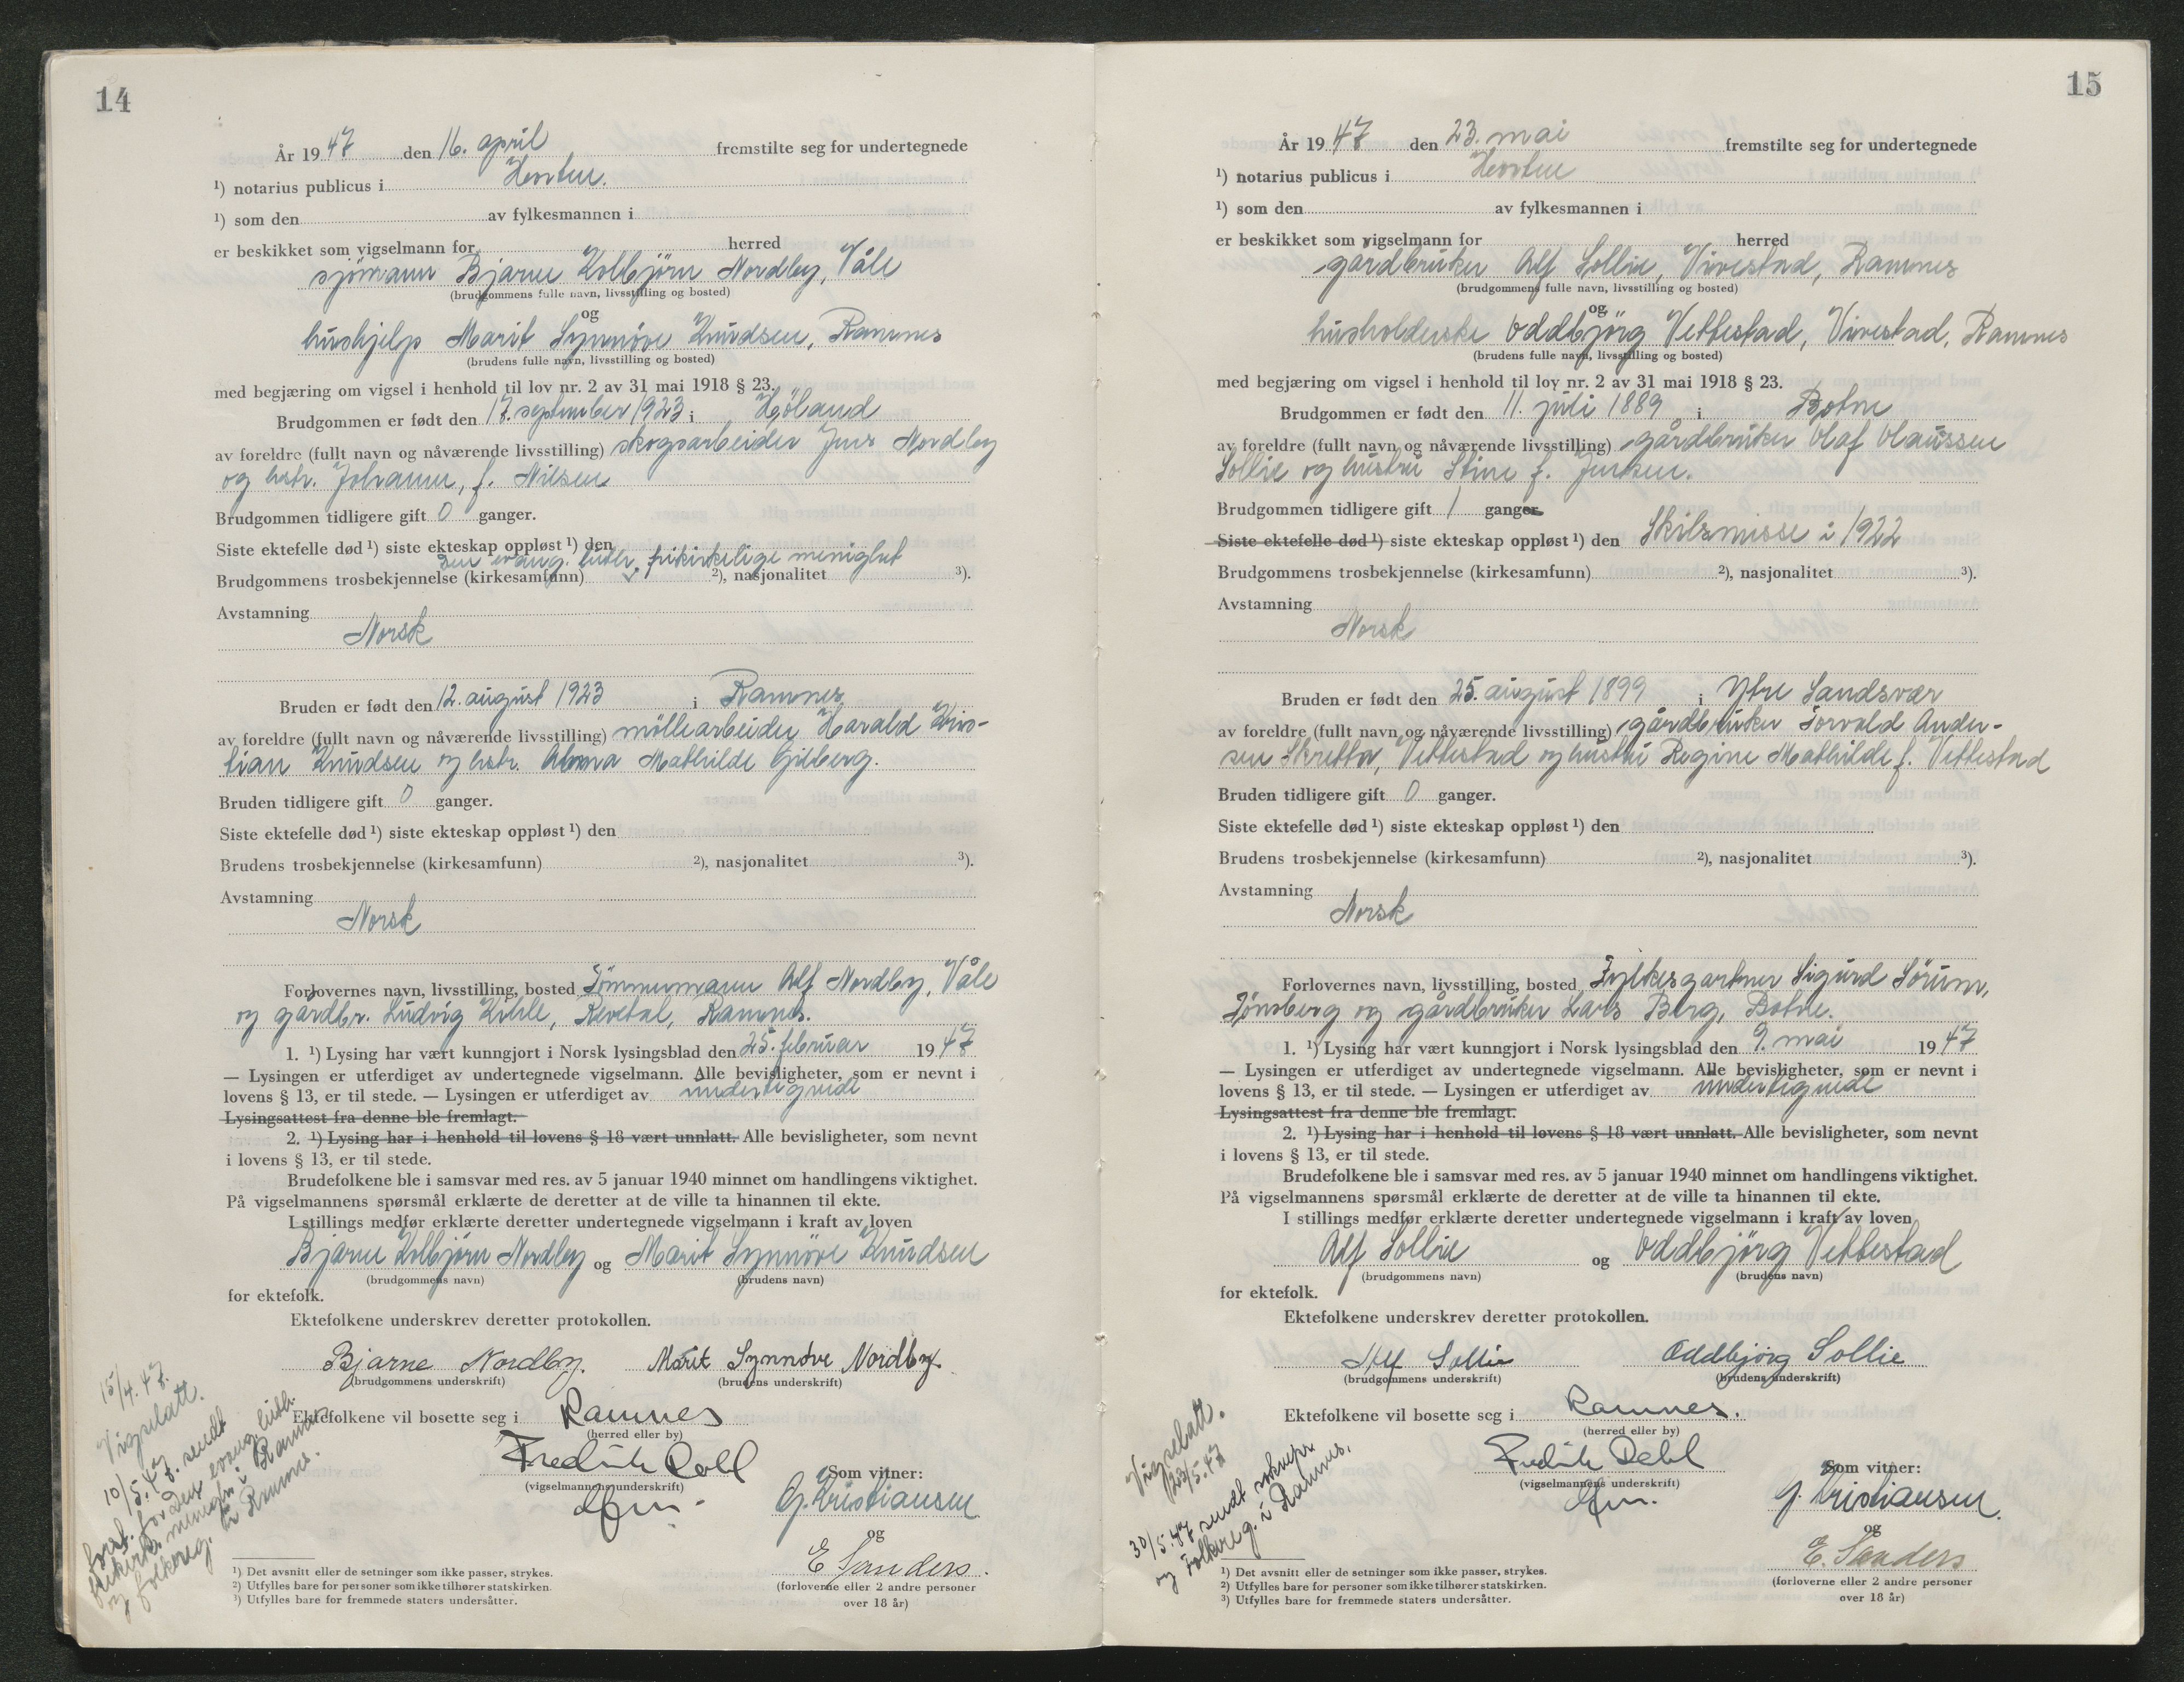 14
År 1947 den 16. april fremstilte seg for undertegnede
¹) notarius publicus i Horten.
¹) som den av fylkesmannen i
er beskikket som vigselmann for herred
sjömann Bjarne Kolbjörn Nordby, Våle
(brudgommens fulle navn, livsstilling og bosted)
og
hushjelp Marit Synnöve Knudsen, Ramnes
(brudens fulle navn, livsstilling og bosted)
med begjæring om vigsel i henhold til lov nr. 2 av 31 mai 1918 § 23.
Brudgommen er født den 17. september 1923 i Höland
av foreldre (fullt navn og nåværende livsstilling) skogsarbeider Jens Nordby
og hstr. Johanne, f. Nilsen
Brudgommen tidligere gift 0 ganger.
Siste ektefelle død ¹) siste ekteskap oppløst ¹) den
Den evang. luth. frikirkelige menighet
Brudgommens trosbekjennelse (kirkesamfunn) ²), nasjonalitet ³).
Avstamning
Norsk
Bruden er født den 12. august 1923 i Ramnes
av foreldre (fullt navn og nåværende livsstilling) möllearbeider Harald Kris-
tian Knudsen og hstr. Alma Mathilde Gilberg.
Bruden tidligere gift 0 ganger.
Siste ektefelle død ¹) siste ekteskap oppløst ¹) den
Brudens trosbekjennelse (kirkesamfunn) ²), nasjonalitet ³).
Avstamning
Norsk
Forlovernes navn, livsstilling, bosted Tömmermann Alf Nordby, Våle
og gårdbr. Ludvig Kihle, Revetal, Ramnes.
1. ¹) Lysing har vært kunngjort i Norsk lysingsblad den 25. februar 1947
— Lysingen er utferdiget av undertegnede vigselmann. Alle bevisligheter, som er nevnt i
lovens § 13, er til stede. — Lysingen er utferdiget av undertegnede
Lysingsattest fra denne ble fremlagt.
2. ¹) Lysing har i henhold til lovens § 18 vært unnlatt. Alle bevisligheter, som nevnt
i lovens § 13, er til stede.
Brudefolkene ble i samsvar med res. av 5 januar 1940 minnet om handlingens viktighet.
På vigselmannens spørsmål erklærte de deretter at de ville ta hinannen til ekte.
I stillings medfør erklærte deretter undertegnede vigselmann i kraft av loven
Bjarne Kolbjörn Nordby og Marit Synnöve Knudsen
(brudgommens navn) (brudens navn)
for ektefolk.
Ektefolkene underskrev deretter protokollen.
Bjarne Nordby. Marit Synnöve Nordby.
(brudgommens underskrift) (brudens underskrift)
Ektefolkene vil bosette seg i Ramnes
(herred eller by)
Fredrik Dehl
(vigselmannens underskrift)
Som vitner:
G. Kristiansen
og
E Sanders.
(forloverne eller 2 andre personer
over 18 år)
15/4.47.
Vigselatt.
10/5.47 sendt
forst. for den evang. luth.
frikirk. menigh. i Ramnes
og folkereg. i Ramnes.
¹) Det avsnitt eller de setninger som ikke passer, strykes.
²) Utfylles bare for personer som ikke tilhører statskirken.
³) Utfylles bare for fremmede staters undersåtter.
15
År 1947 den 23. mai fremstilte seg for undertegnede
¹) notarius publicus i Horten
¹) som den av fylkesmannen i
er beskikket som vigselmann for herred
gårdbruker Alf Sollie, Vivestad, Ramnes
(brudgommens fulle navn, livsstilling og bosted)
og
husholderske Oddbjörg Vettestad, Vivestad, Ramnes
(brudens fulle navn, livsstilling og bosted)
med begjæring om vigsel i henhold til lov nr. 2 av 31 mai 1918 § 23.
Brudgommen er født den 11. juli 1889 i Botne
av foreldre (fullt navn og nåværende livsstilling) gårdbruker Olaf Olaussen
Sollie og hustru Stine f. Jensen.
Brudgommen tidligere gift 1 ganger
Siste ektefelle død ¹) siste ekteskap oppløst ¹) den Skilsmisse i 1922
Brudgommens trosbekjennelse (kirkesamfunn) ²), nasjonalitet ³).
Avstamning
Norsk
Bruden er født den 25. august 1899 i Ytre Sandsvær
av foreldre (fullt navn og nåværende livsstilling) gårdbruker Torvald Ander-
sen Skretta, Vettestad og hustru Regine Mathilde f. Vettestad
Bruden tidligere gift 0 ganger.
Siste ektefelle død ¹) siste ekteskap oppløst ¹) den
Brudens trosbekjennelse (kirkesamfunn) ²), nasjonalitet ³).
Avstamning
Norsk
Forlovernes navn, livsstilling, bosted Fylkesgartner Sigurd Sörum,
Tönsberg og gårdbruker Lars Berg, Botne.
1. ¹) Lysing har vært kunngjort i Norsk lysingsblad den 9. mai 1947
— Lysingen er utferdiget av undertegnede vigselmann. Alle bevisligheter, som er nevnt i
lovens § 13, er til stede. — Lysingen er utferdiget av undertegnede
Lysingsattest fra denne ble fremlagt.
2. ¹) Lysing har i henhold til lovens § 18 vært unnlatt. Alle bevisligheter, som nevnt
i lovens § 13, er til stede.
Brudefolkene ble i samsvar med res. av 5 januar 1940 minnet om handlingens viktighet.
På vigselmannens spørsmål erklærte de deretter at de ville ta hinannen til ekte.
I stillings medfør erklærte deretter undertegnede vigselmann i kraft av loven
Alf Sollie og Oddbjörg Vettestad
(brudgommens navn) (brudens navn)
for ektefolk.
Ektefolkene underskrev deretter protokollen.
Alf Sollie Oddbjörg Sollie
(brudgommens underskrift) (brudens underskrift)
Ektefolkene vil bosette seg i Ramnes.
(herred eller by)
Fredrik Dehl
(vigselmannens underskrift)
Som vitner:
G. Kristiansen.
og
E. Sanders
(forloverne eller 2 andre personer
over 18 år)
Vigselatt.
23/5.47
30/5.47 sendt soknepr.
og Folkereg. i Ramnes.
¹) Det avsnitt eller de setninger som ikke passer, strykes.
²) Utfylles bare for personer som ikke tilhører statskirken.
³) Utfylles bare for fremmede staters undersåtter.